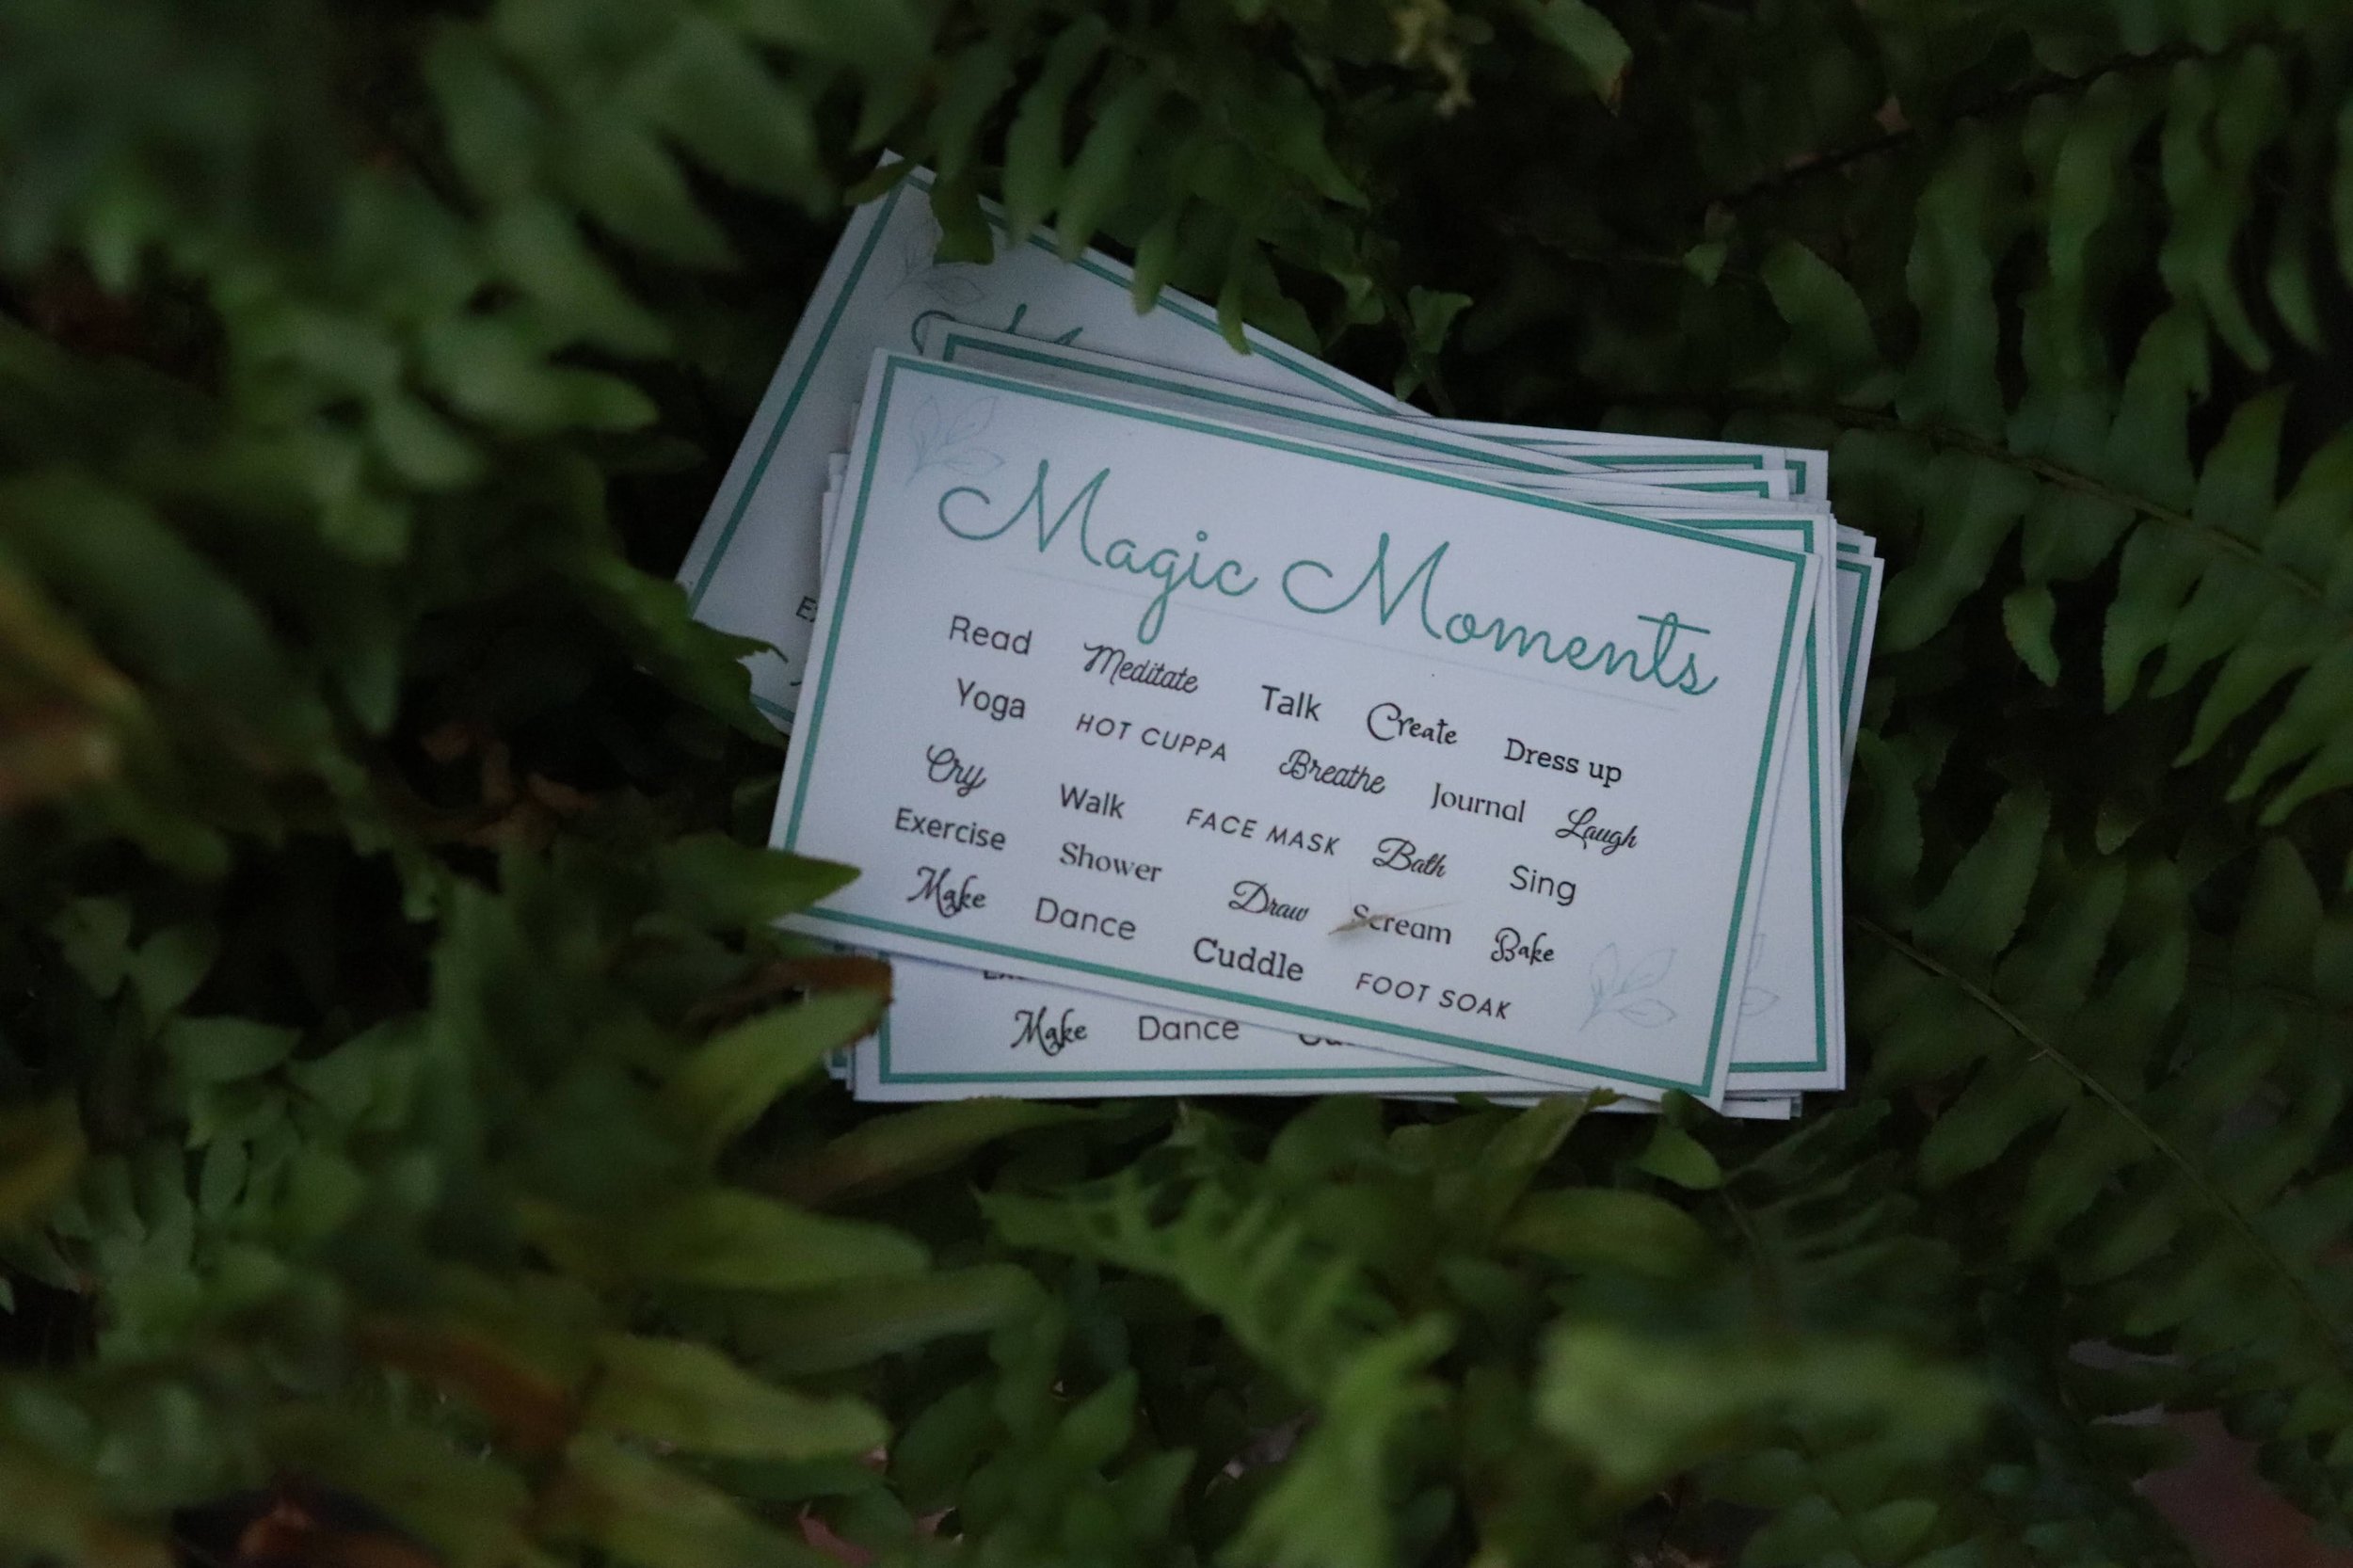 Magic Moments
Read Meditate Talk Create Dress up
Yoga HOT CUPPA Breathe Journal Laugh
Cry Walk FACE MASK Bath Sing
Exercise Shower Draw Scream Bake
Make Dance Cuddle FOOT SOAK
Make Dance